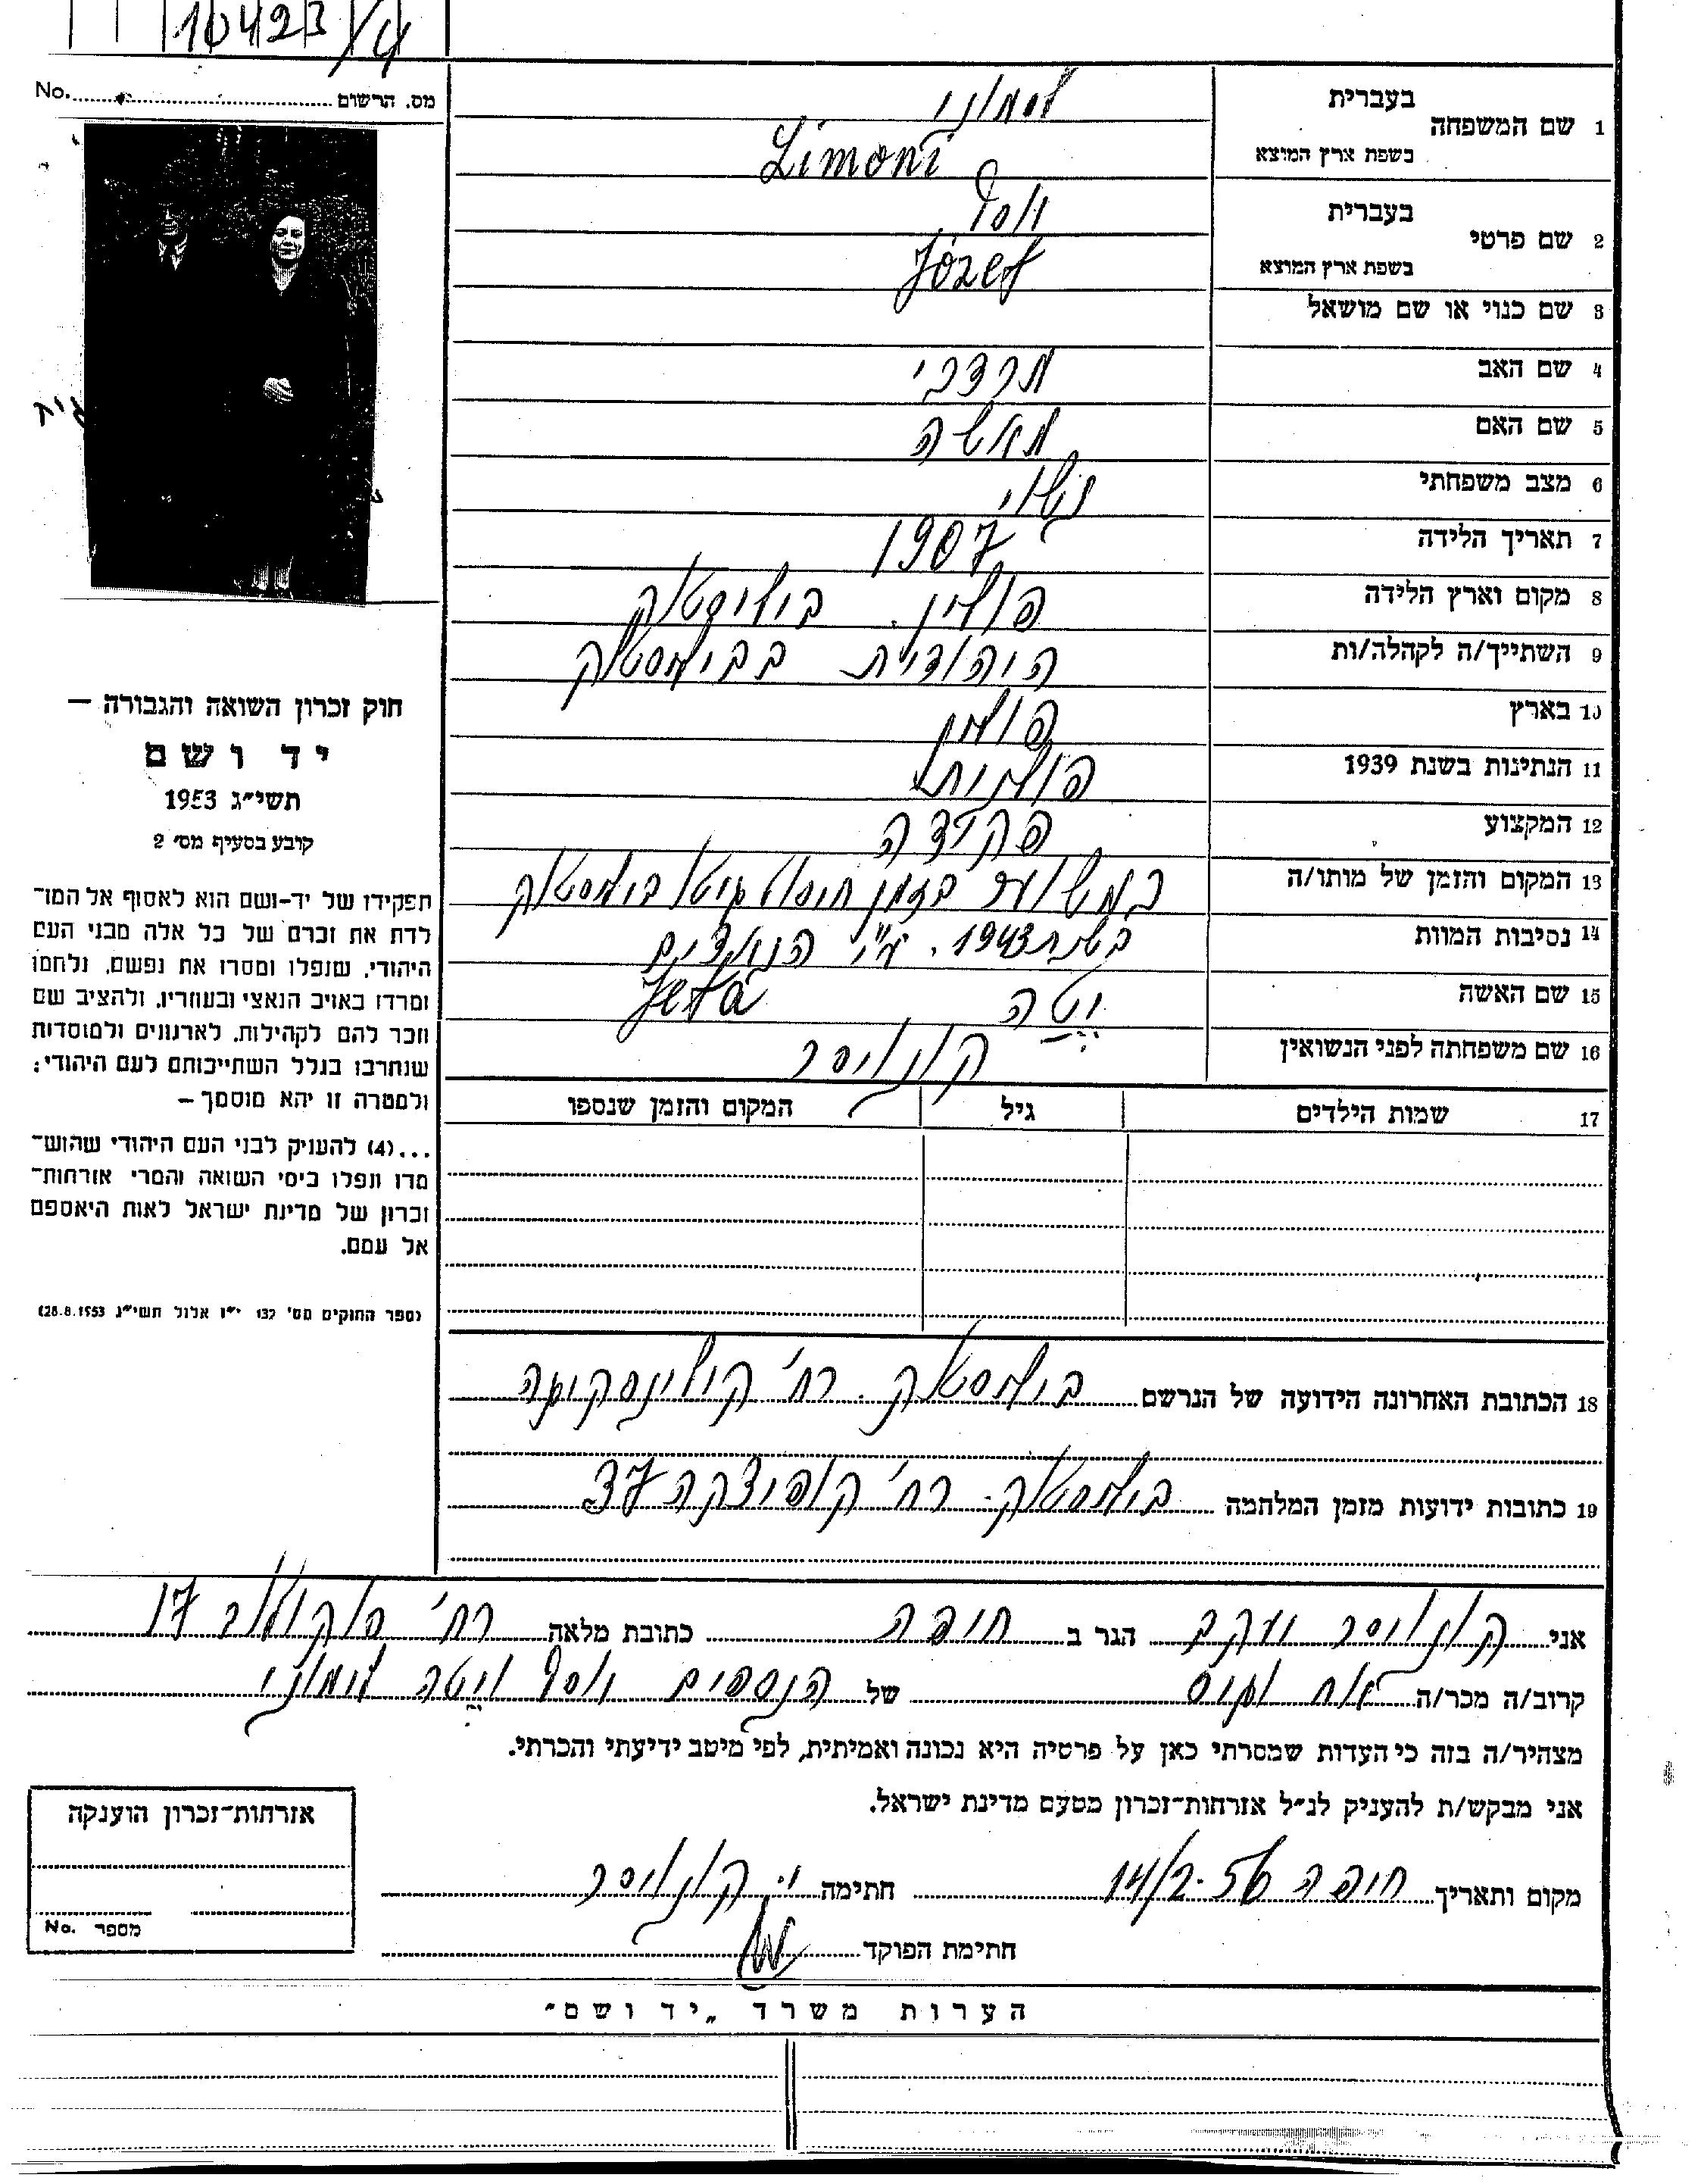 10423/4
No. ........ מס. הרשום
1 שם המשפחה בעברית לימוני
בשפת ארץ המוצא Limoni
2 שם פרטי בעברית יוסף
בשפת ארץ המוצא Józef
3 שם כנוי או שם מושאל
4 שם האב מרדכי
5 שם האם מאשה
6 מצב משפחתי נשוי
7 תאריך הלידה 1907
8 מקום וארץ הלידה פולין. ביליסטוק
9 השתייך/ה לקהלה/ות היהודית בביליסטוק
10 בארץ פולין
11 הנתינות בשנת 1939 פולנית
12 המקצוע פקידה
13 המקום והזמן של מותו/ה בזמן חיסול גיטו ביליסטוק
14 נסיבות המוות בשנת 1943. ע"י הנאצים
15 שם האשה יטה Jeta
16 שם משפחתה לפני הנשואין
17 שמות הילדים גיל המקום והזמן שנספו
18 הכתובת האחרונה הידועה של הנרשם ביליסטוק. רח'
19 כתובות ידועות מזמן המלחמה ביליסטוק. רח' קופיצקה 37
חוק זכרון השואה והגבורה –
יד ושם
תשי"ג 1953
קובע בסעיף מס׳ 2
תפקידו של יד-ושם הוא לאסוף אל המו־
לדת את זכרם של כל אלה מבני העם
היהודי, שנפלו ומסרו את נפשם, נלחמו
ומרדו באויב הנאצי ובעוזריו, ולהציב שם
וזכר להם לקהילות, לארגונים ולמוסדות
שנחרבו בגלל השתייכותם לעם היהודי;
ולמטרה זו יהא מוסמך –
...(4) להעניק לבני העם היהודי שהוש־
מדו ונפלו בימי השואה והמרי אזרחות־
זכרון של מדינת ישראל לאות היאספם
אל עמם.
(ספר החוקים מס' 132 י"ז אלול תשי"ג 28.8.1953)
אני יעקב הגר ב חיפה כתובת מלאה רח' 17
קרוב/ה מכר/ה של הנספים יוסף ויטה לימוני
מצהיר/ה בזה כי העדות שמסרתי כאן על פרטיה היא נכונה ואמיתית, לפי מיטב ידיעתי והכרתי.
אני מבקש/ת להעניק לנ"ל אזרחות־זכרון מטעם מדינת ישראל.
מקום ותאריך חיפה 14/2.56 חתימה
חתימת הפוקד
אזרחות־זכרון הוענקה
מספר No.
הערות משרד „יד ושם"